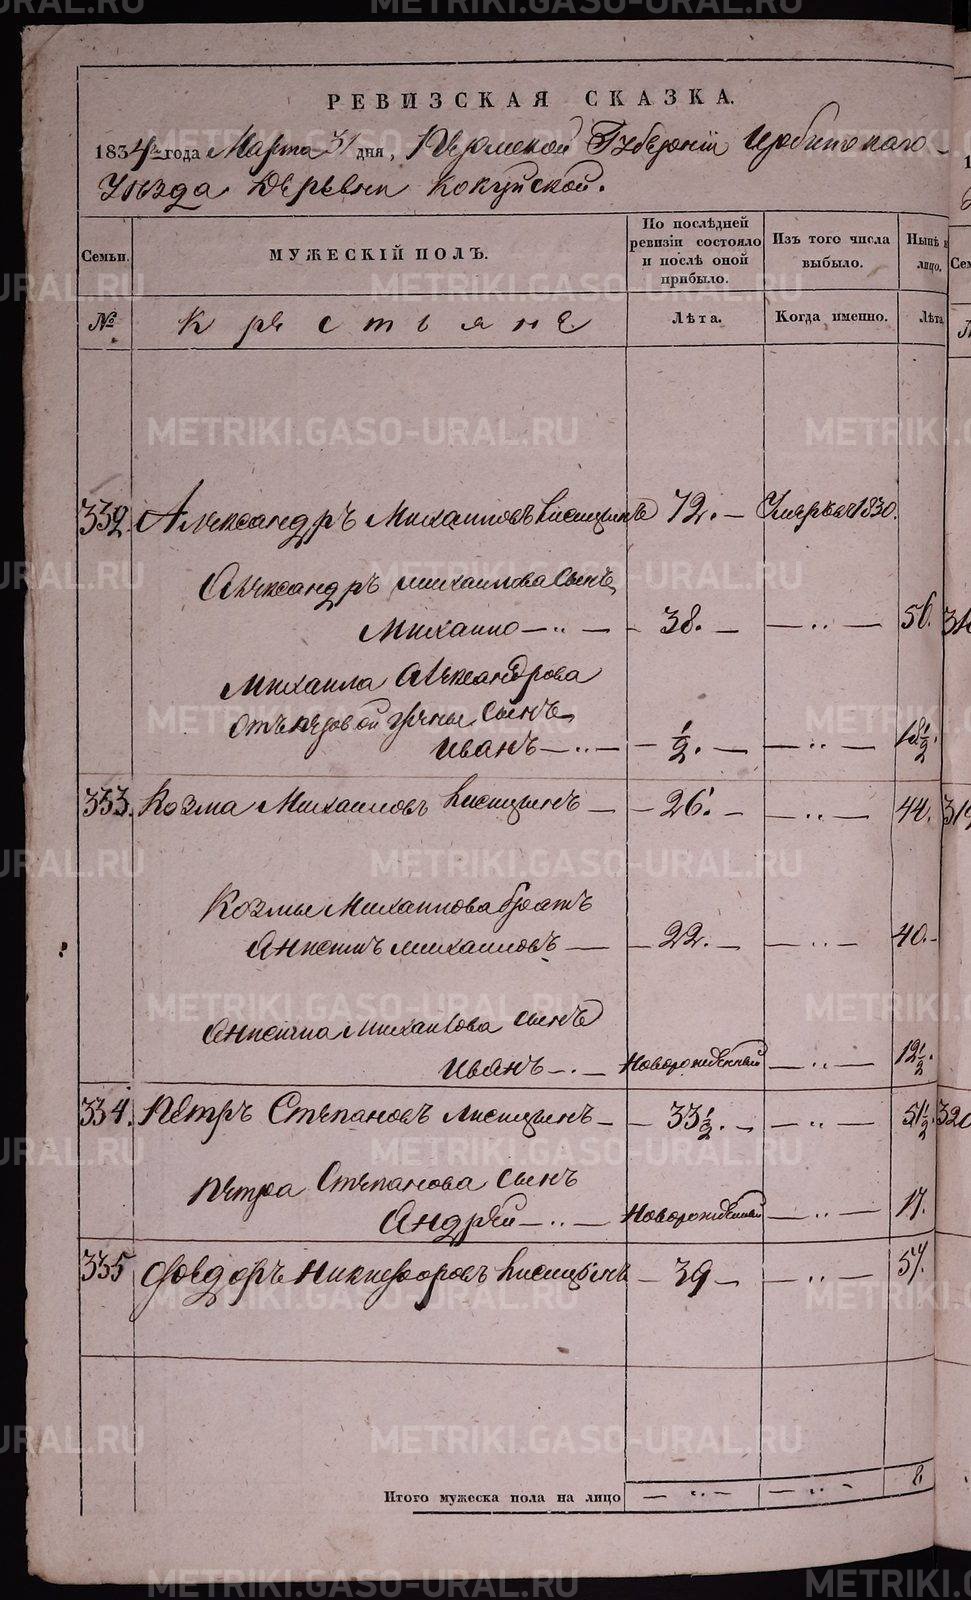 РЕВИЗСКАЯ СКАЗКА.
1834 года Марта 31 дня, Пермской Губернiи Ирбитскаго
Уѣзда Деревни Кокуйской.
Семьи. МУЖЕСКІЙ ПОЛЪ. По послѣдней ревизіи состояло и послѣ оной прибыло. Изъ того числа выбыло. Нынѣ лицо,
№ Крестьяне Лѣта. Когда именно. Лѣта
332. Александръ Михаиловъ Лисицынъ 72. Умеръ въ 1830.
Александръ Михаилова Сынъ
Михаило — 38. — 56.
Михаила Александрова
отъ первой жены Сынъ
Иванъ — ½. — 18½.
333. Козма Михаиловъ Лисицынъ — 26. — 44.
Козмы Михаилова братъ
Анисимъ Михаиловъ — 22. — 40.
Анисима Михаилова сынъ
Иванъ — Новорожденный — 12½.
334. Петръ Степановъ Лисицынъ — 33½. — 51½.
Петра Степанова сынъ
Андрей — Новорожденный — 17.
335 Федоръ Никифоровъ Лисицынъ — 39 — 57.
Итого мужеска пола на лицо — 8
METRIKI.GASO-URAL.RU